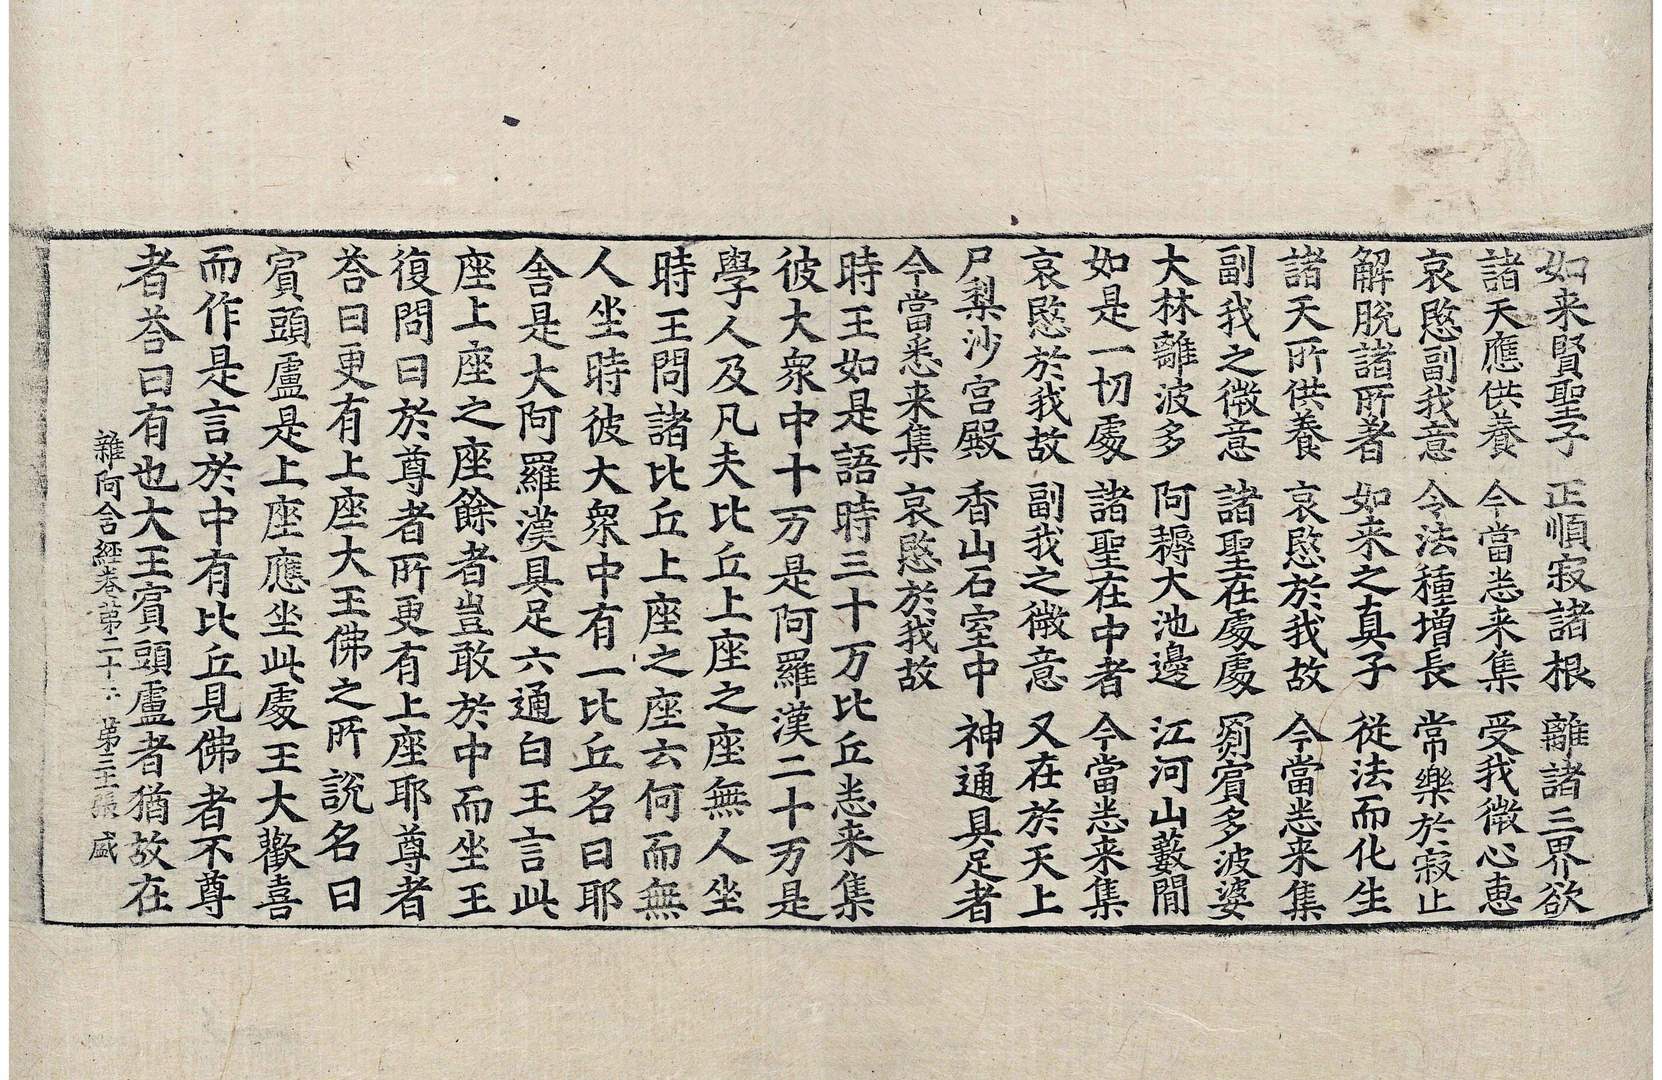 如来賢聖子 正順寂諸根 離諸三界欲
諸天應供養 今當悉来集 受我微心惠
哀愍副我意 令法種增長 常樂於寂止
解脫諸所著 如来之真子 從法而化生
諸天所供養 哀愍於我故 今當悉来集
副我之微意 諸聖在處處 罽賓多波婆
大林離波多 阿耨大池邊 江河山藪間
如是一切處 諸聖在中者 今當悉来集
哀愍於我故 副我之微意 又在於天上
尸梨沙宫殿 香山石室中 神通具足者
今當悉来集 哀愍於我故
時王如是語時三十万比丘悉来集
彼大衆中十万是阿羅漢二十万是
學人及凡夫比丘上座之座無人坐
時王問諸比丘上座之座云何而無
人坐時彼大衆中有一比丘名曰耶
舍是大阿羅漢具足六通白王言此
座上座之座餘者豈敢於中而坐王
復問曰於尊者所更有上座耶尊者
荅曰更有上座大王佛之所說名曰
賓頭盧是上座應坐此處王大歡喜
而作是言於中有比丘見佛者不尊
者荅曰有也大王賓頭盧者猶故在
雜阿含經卷第二十 第三 張 盛